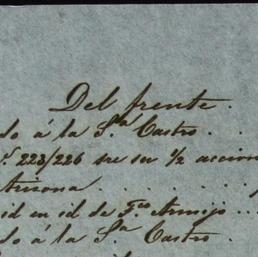 Del frente.
do á la S.ª Castro . .
223/226 sre su 1/2 accion
Arisona . . . . .
id en id de F.co Armijo . .
do á la S.ª Castro .